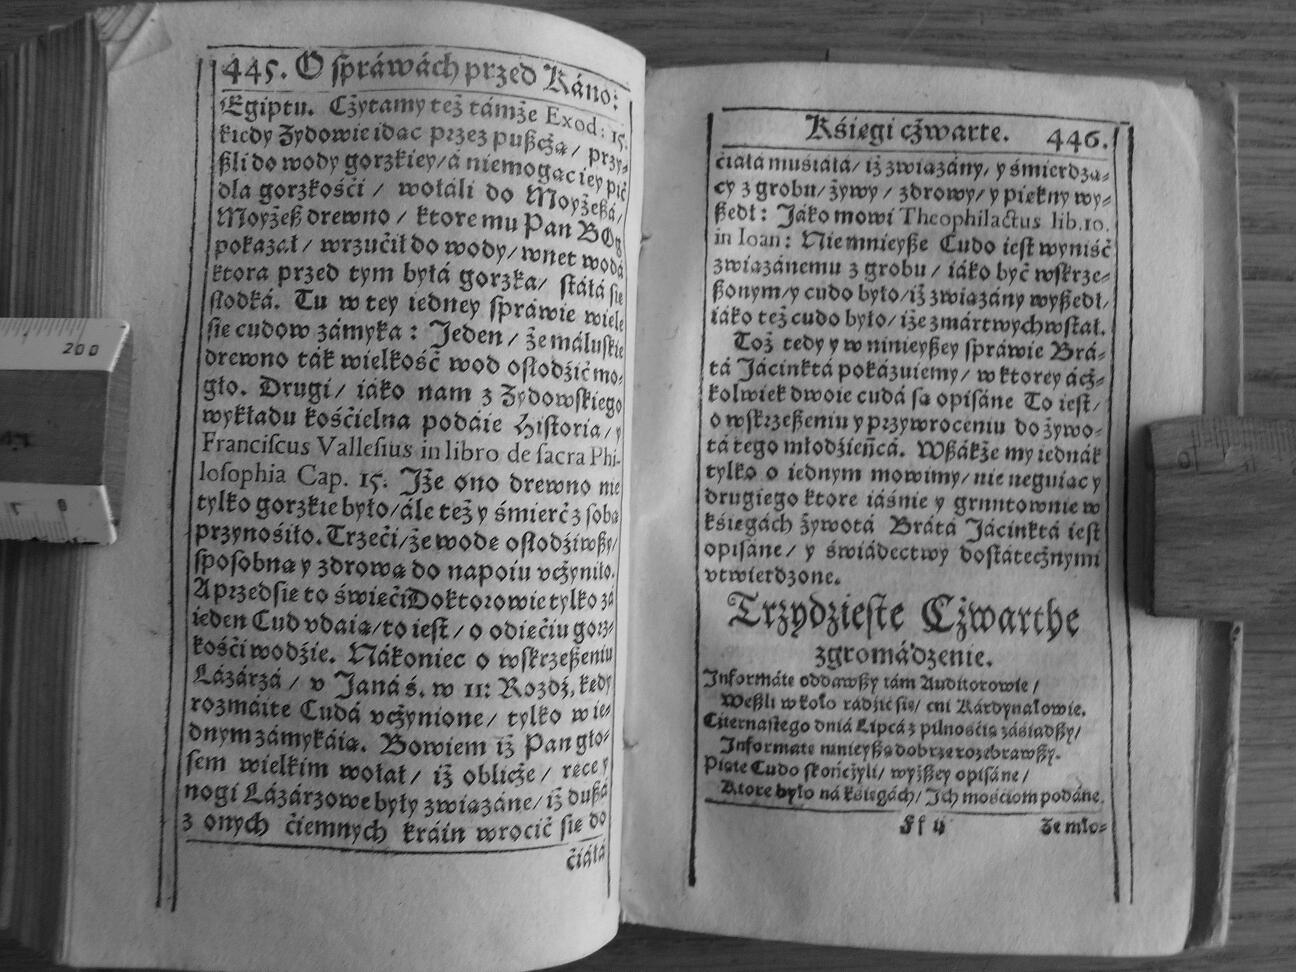 445. O spráwách przed Káno:
Egiptu. Cżytamy też támże Exod: 15.
kiedy Zydowie idac przez pußcżą/ przy-
ßli do wody gorzkiey/á niemogac iey pić
dla gorzkośći / wołáli do Moyżeßá/
Moyżeß drewno / ktore mu Pan BOg
pokazał/ wrzućił do wody/ wnet wodá
ktora przed tym byłá gorzka/ stáłá się
słodká. Tu w tey iedney spráwie wiele
sie cudow zámyka: Jeden/ że máluśkie
drewno ták wielkość wod osłodźić mo-
gło. Drugi/ iáko nam z Zydowskiego
wykładu kośćielna podáie Historia/ y
Franciscus Vallesius in libro de sacra Phi-
losophia Cap. 15. Jże ono drewno nie
tylko gorzkie było/ále też y śmierć z sobą
przynośiło. Trzeći/że wodę osłodźiwßy/
sposobną y zdrową do napoiu vcżyniło.
A przedsie to święći Doktorowie tylko zá
ieden Cud vdaią/to iest/ o odięćiu gorz-
kośći wodźie. Nákoniec o wskrzeßeniu
Lázárzá / v Janá ś. w 11: Rozdź, kedy
rozmáite Cudá vcżynione/ tylko w ie-
dnym zámykáią. Bowiem iż Pan gło-
sem wielkim wołał/ iż oblicże/ ręce y
nogi Lázárzowe były związáne/ iż dußá
z onych ćiemnych kráin wroćić się do
ćiáłá
Kśięgi cżwarte. 446.
ćiáłá muśiáłá/ iż związány/ y śmierdzą-
cy z grobu/ żywy/ zdrowy/ y piękny wy-
ßedł: Jáko mowi Theophilactus lib.10.
in Ioan: Niemnieyße Cudo iest wyniść
związánemu z grobu/ iáko być wskrze-
ßonym/y cudo było/iż związány wyßedł/
iáko też cudo było/ iże zmártwychwstał.
Toż tedy y w ninieyßey spráwie Brá-
tá Jácinktá pokázuiemy/ w ktorey ácż-
kolwiek dwoie cudá są opisáne To iest/
o wskrzeßeniu y przywroceniu do żywo-
tá tego młodźieńcá. Wßákże my iednák
tylko o iednym mowimy/ nie neguiąc y
drugiego ktore iáśnie y gruntownie w
kśięgách żywotá Brátá Jácinktá iest
opisáne/ y świádectwy dostátecżnymi
vtwierdzone.
Trzydzieste Cżwarthe
zgromádzenie.
Informáte oddawßy tám Auditorowie/
Weßli w koło rádźić się/ cni Kárdynałowie.
Cżternastego dniá Lipcá z pilnośćią záśiadßy/
Informate ninieyßą dobrze rozebrawßy.
Piąte Cudo skończyli/ wyżßey opisáne/
Ktore było ná kśięgách/ Jch mośćiom podáne.
Ff ij Ze mło-